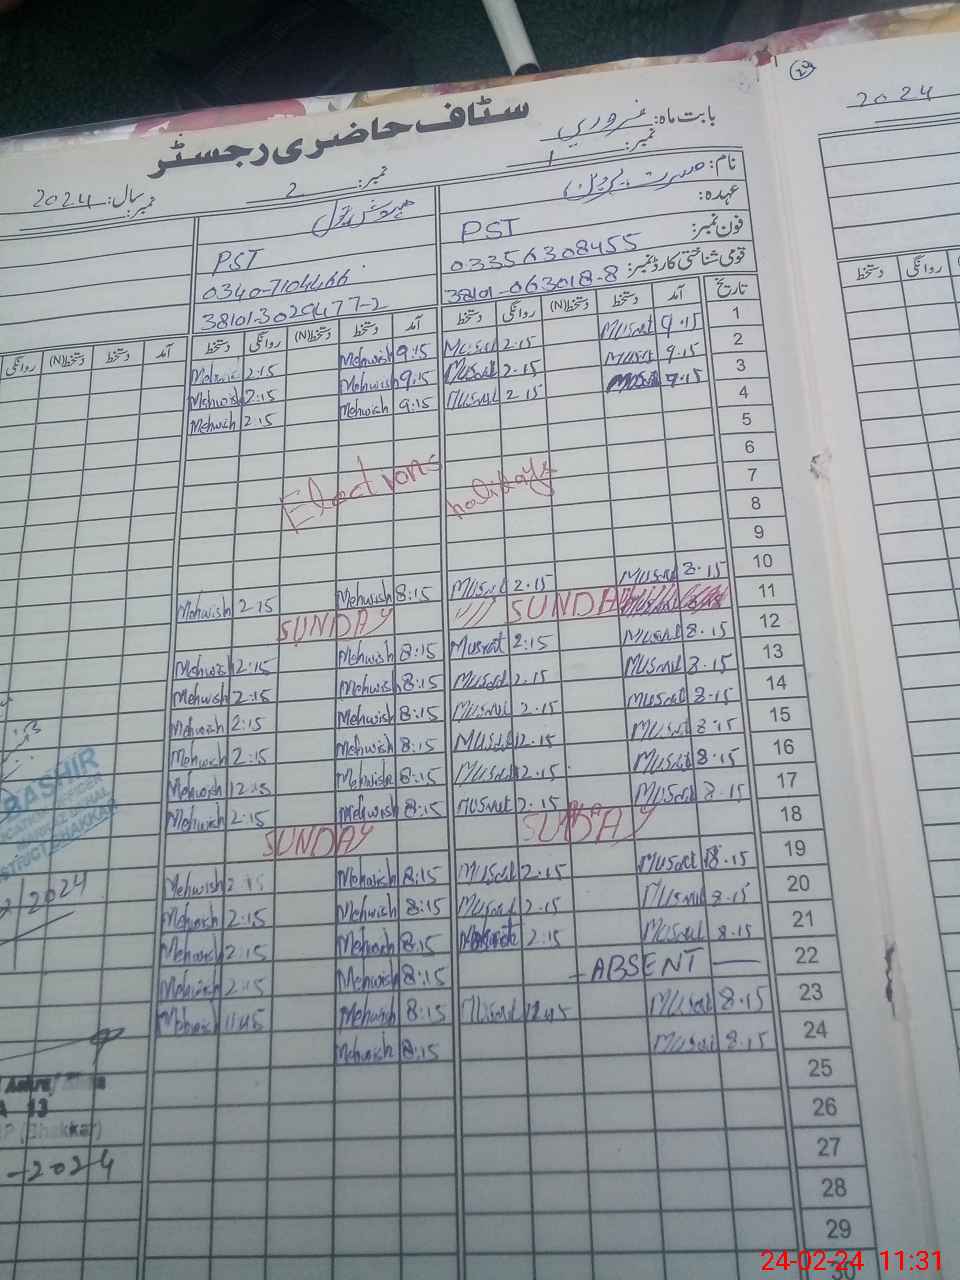 2024
29
سٹاف حاضری رجسٹر
بابت ماہ: فروری
نمبر: 1
نمبر: 2
سال: 2024
نمبر:
نام: مسرت پروین
عہدہ: PST
PST
فون نمبر: 03356308455
0340-7104466
قومی شناختی کارڈ نمبر: 38101-063018-8
38101-3029477-2
تاریخ آمد دستخط دستخط(N) روانگی دستخط آمد دستخط دستخط(N) روانگی دستخط آمد دستخط دستخط(N) روانگی
روانگی دستخط
1 9.15 Musrat 2.15 Musrat 9:15 Mehwish 2:15 Mehwish
2 9.15 Musrat 2.15 Musrat 9.15 Mehwish 2:15 Mehwish
3 9.15 Musrat 2 15 Musrat 9:15 Mehwish 2:15 Mehwish
4
5
6
Elections holidays
7
8
9
10 8.15 Musrat 2.15 Musrat 8:15 Mehwish 2:15 Mehwish
11 SUNDAY SUNDAY
12 8.15 Musrat 2:15 Musrat 8:15 Mehwish 2:15 Mehwish
13 8.15 Musrat 2.15 Musrat 8:15 Mehwish 2:15 Mehwish
14 8:15 Musrat 2.15 Musrat 8:15 Mehwish 2:15 Mehwish
15 8:15 Musrat 2.15 Musrat 8:15 Mehwish 2:15 Mehwish
16 8.15 Musrat 2.15 Musrat 8:15 Mehwish 2:15 Mehwish
17 8.15 Musrat 2.15 Musrat 8:15 Mehwish 2:15 Mehwish
18 SUNDAY SUNDAY
19 8.15 Musrat 2.15 Musrat 8:15 Mehwish 2:15 Mehwish
20 8.15 Musrat 2.15 Musrat 8:15 Mehwish 2:15 Mehwish
21 8.15 Musrat 2.15 8:15 Mehwish 2:15 Mehwish
22 — ABSENT — 8:15 Mehwish 2:15 Mehwish
23 8.15 Musrat 12.45 Musrat 8:15 Mehwish 11:45 Mehwish
24 8.15 Musrat 8:15 Mehwish
25
26
27
28
29
30
BASHIR
2024
13
(Bhakkar)
-2024
24-02-24 11:31